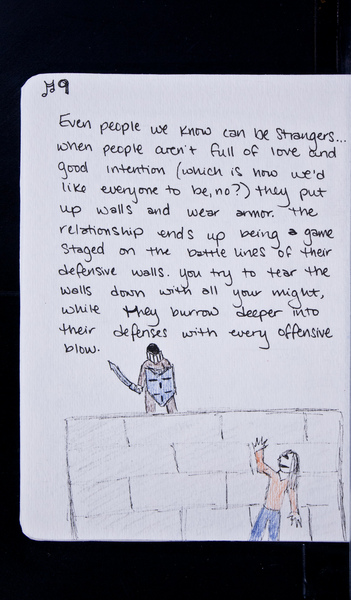 #9
Even people we know can be strangers...
when people aren't full of love and
good intention (which is how we'd
like everyone to be, no?) they put
up walls and wear armor. the
relationship ends up being a game
staged on the battle lines of their
defensive walls. you try to tear the
walls down with all your might,
while they burrow deeper into
their defenses with every offensive
blow.